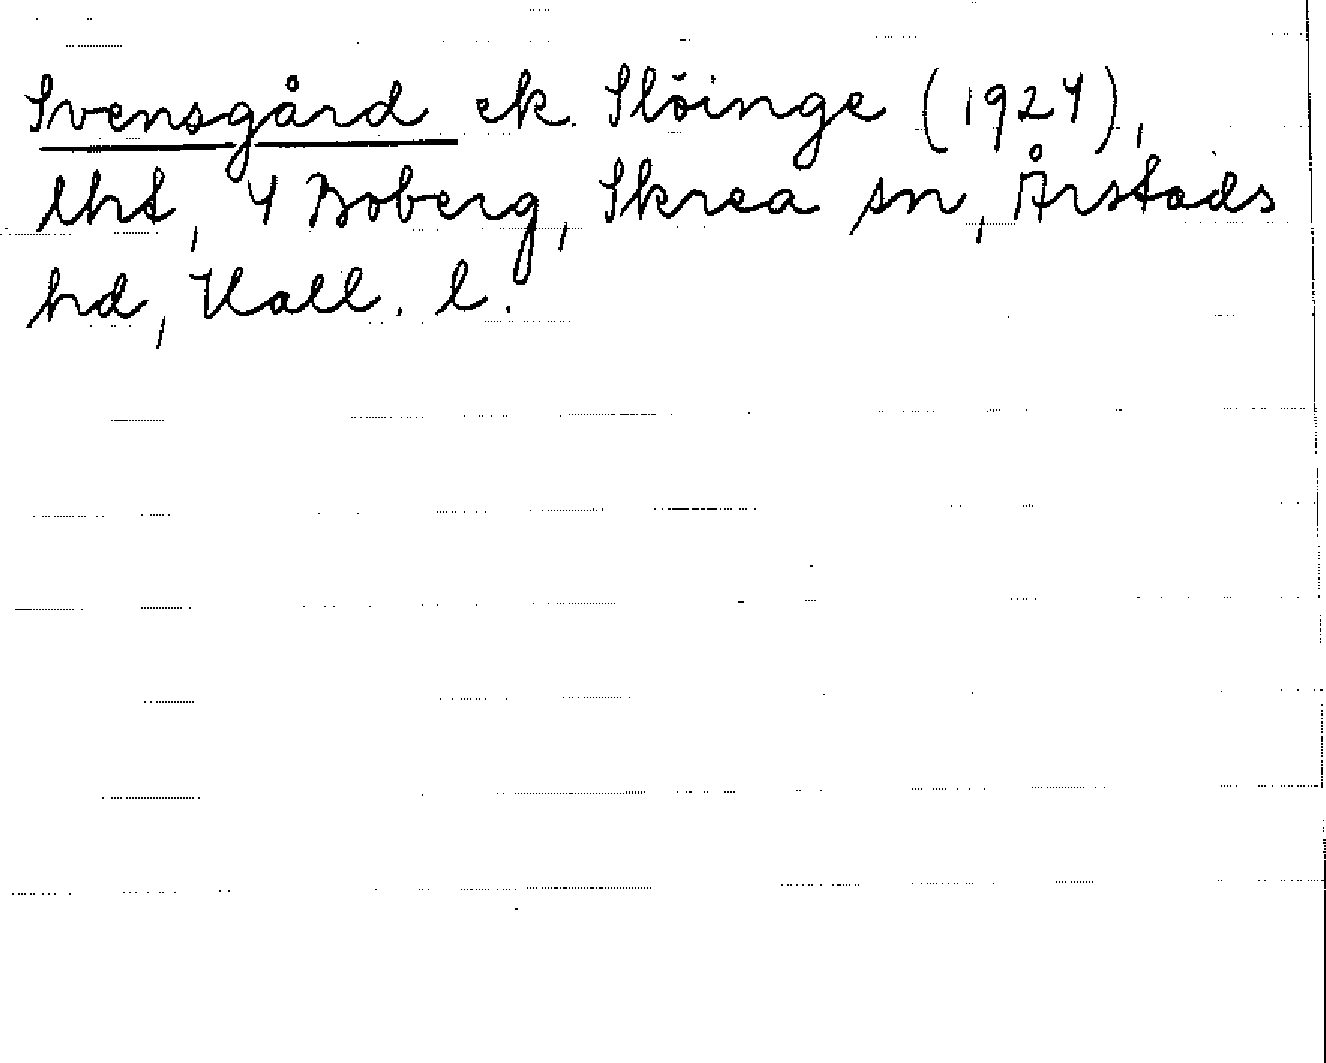 Svensgård ek. Slöinge (1924),
lht, 4 Boberg, Skrea sn, Årstads
hd, Hall. l.